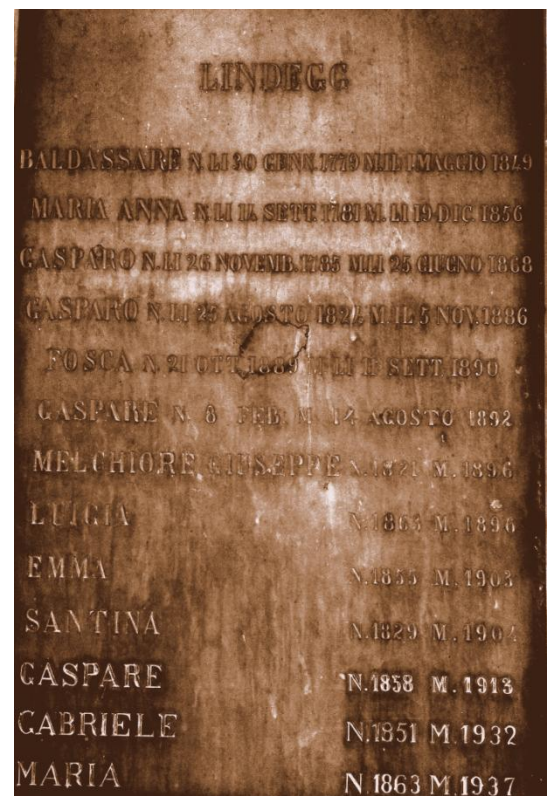 LINDEGG
BALDASSARE N. LI 30 GENN. 1779 M. IL 1 MAGGIO 1849
MARIA ANNA N. LI SETT. 1781 M. LI 19 DIC. 1856
GASPARO N. LI 26 NOVEMB. 1785 M. LI 25 GIUGNO 1868
GASPARO N. LI 25 AGOSTO M. IL 5 NOV. 1886
FOSCA N. 21 OTT. 1889 M. LI SETT. 1890
GASPARE N. 8 FEB. M. 14 AGOSTO 1892
MELCHIORE GIUSEPPE N. 1821 M. 1896
LUIGIA N. 1865 M. 1896
EMMA N. 1855 M. 1903
SANTINA N. 1829 M. 1904
GASPARE N. 1858 M. 1913
GABRIELE N. 1851 M. 1932
MARIA N. 1863 M. 1937